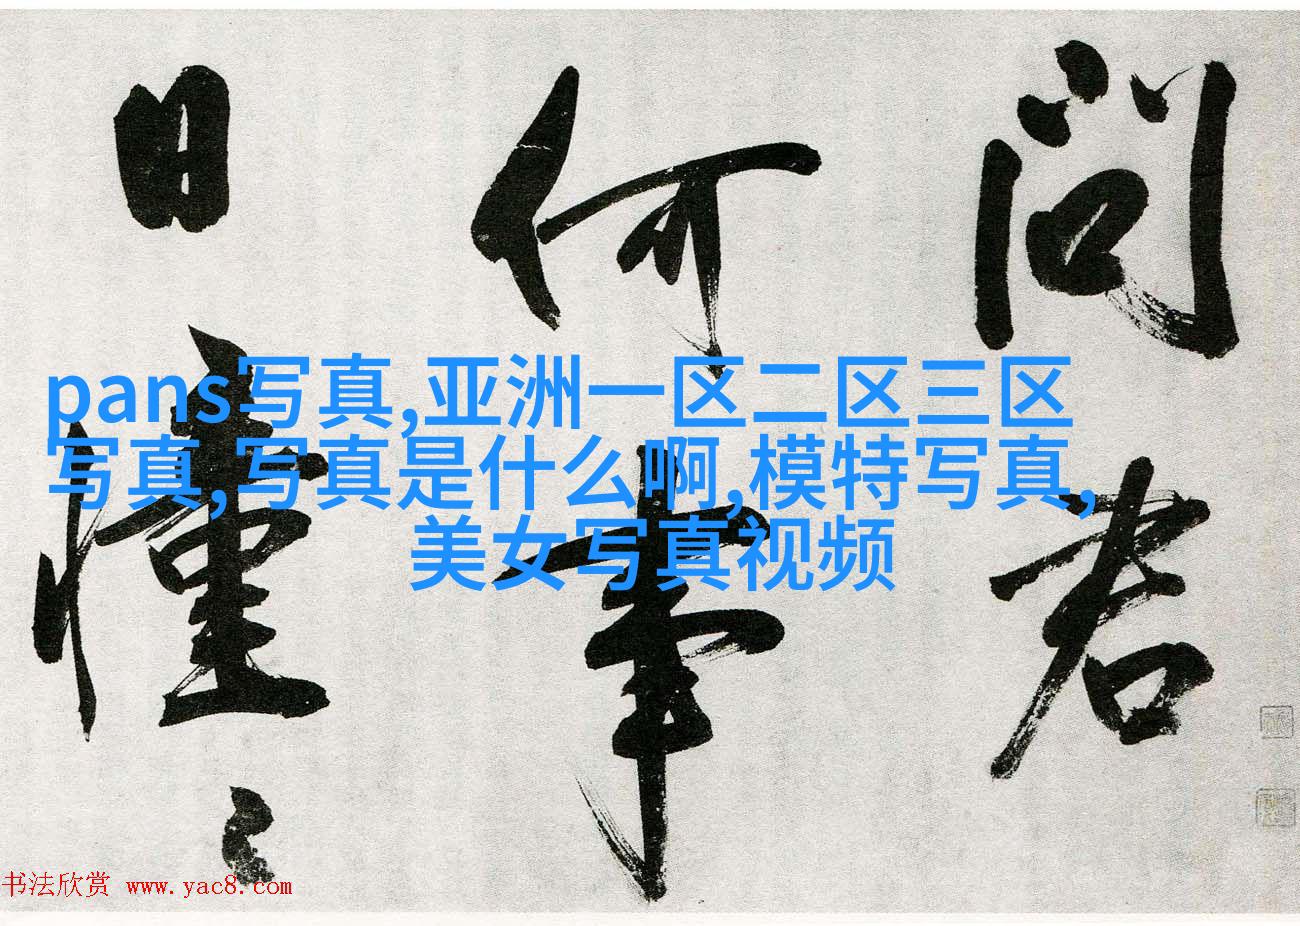 问君
何事
日憧々
pans写真,亚洲一区二区三区
写真,写真是什么啊,模特写真,
美女写真视频
书法欣赏 www.yac8.com